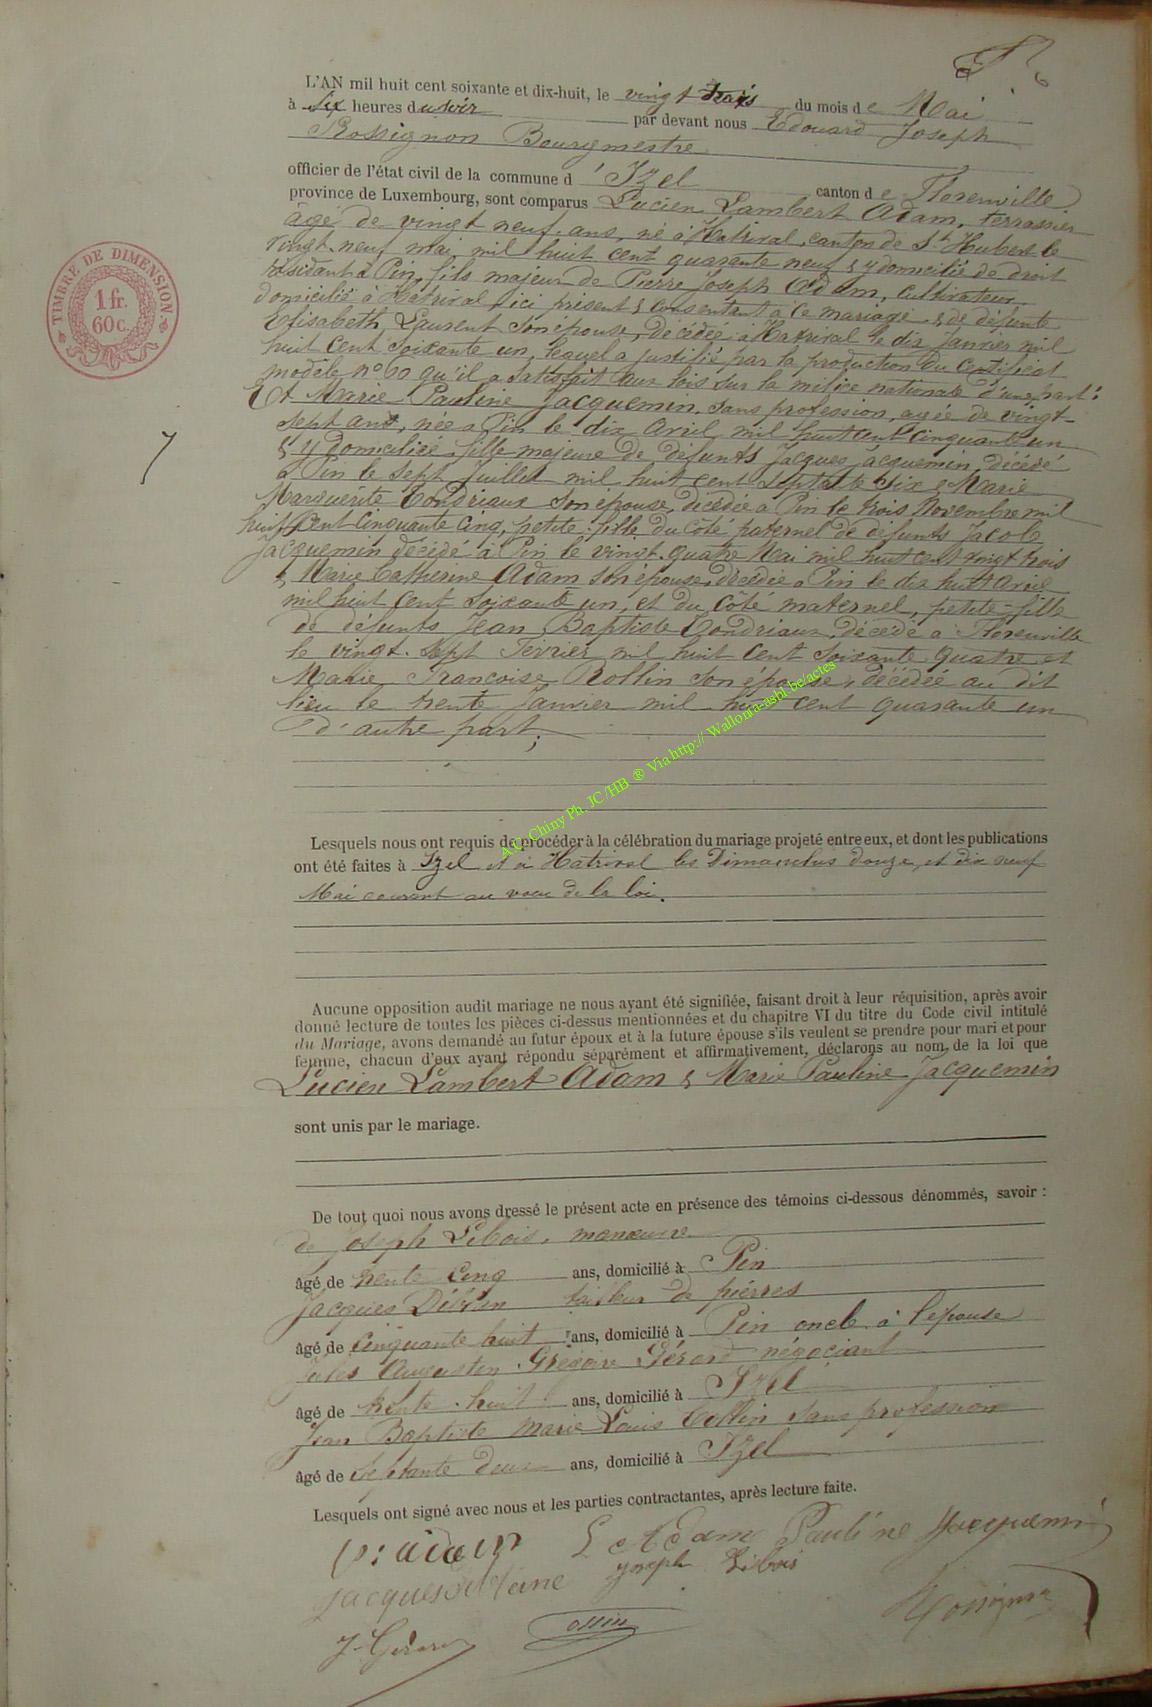 L'AN mil huit cent soixante et dix-huit, le vingt trois du mois de Mai
à six heures du soir par devant nous Edouard Joseph
Rossignon Bourgmestre
officier de l'état civil de la commune d'Izel canton de Florenville
province de Luxembourg, sont comparus Lucien Lambert Adam, terrassier
âgé de vingt neuf ans, né à Hatrival, canton de St Hubert le
vingt-neuf mai mil huit cent quarante neuf & y domicilié de droit
résidant à Pin, fils majeur de Pierre Joseph Adam, cultivateur
domicilié à Hatrival, ici présent & consentant à ce mariage & de défunte
Elisabeth Laurent son épouse, décédée à Hatrival le dix Janvier mil
huit cent soixante un, lequel a justifié par la production du certificat
modèle n° 60 qu'il a satisfait aux lois sur la milice nationale d'une part :
Et Marie Pauline Jacquemin, sans profession, agée de vingt-
sept ans, née à Pin le dix Avril mil huit cent cinquante un
& y domiciliée fille majeure de défunts Jacques Jacquemin, décédé
à Pin le sept Juillet mil huit cent septante six & Marie
Marguerite Condriaux son épouse, décédée à Pin le trois Novembre mil
huit cent cinquante cinq, petite-fille du côté paternel de défunts Jacob
Jacquemin décédé à Pin le vingt-quatre Mai mil huit cent vingt trois
& Marie Catherine Adam son épouse décédée à Pin le dix huit Avril
mil huit cent soixante un, et du côté maternel, petite-fille
de défunts Jean Baptiste Condriaux, décédé à Florenville
le vingt-sept Fevrier mil huit cent soixante quatre et
Marie Françoise Rollin son épouse, décédée au dit
lieu le trente Janvier mil huit cent quarante un
d'autre part ;
TIMBRE DE DIMENSION
1 fr.
60 c.
7
A.C. Chiny Ph. JC/HB ® Via http:// Wallonia-asbl.be/actes
Lesquels nous ont requis de procéder à la célébration du mariage projeté entre eux, et dont les publications
ont été faites à Izel et à Hatrival les Dimanches douze, et dix neuf
Mai courant au voeu de la loi.
Aucune opposition audit mariage ne nous ayant été signifiée, faisant droit à leur réquisition, après avoir
donné lecture de toutes les pièces ci-dessus mentionnées et du chapitre VI du titre du Code civil intitulé
du Mariage, avons demandé au futur époux et à la future épouse s'ils veulent se prendre pour mari et pour
femme, chacun d'eux ayant répondu séparément et affirmativement, déclarons au nom de la loi que
Lucien Lambert Adam & Marie Pauline Jacquemin
sont unis par le mariage.
De tout quoi nous avons dressé le présent acte en présence des témoins ci-dessous dénommés, savoir :
de Joseph Libois, manoeuvre
âgé de trente cinq ans, domicilié à Pin
Jacques tailleur de pierres
âgé de cinquante huit ans, domicilié à Pin oncle à l'épouse
Jules Augustin Grégoire Gérard négociant
âgé de trente-huit ans, domicilié à Izel
Jean Baptiste Marie Louis Collin sans profession
âgé de septante deux ans, domicilié à Izel
Lesquels ont signé avec nous et les parties contractantes, après lecture faite.
P: adam L Adam Pauline Jacquemin
Jacques Joseph Libois
J. Gérard Rossignon